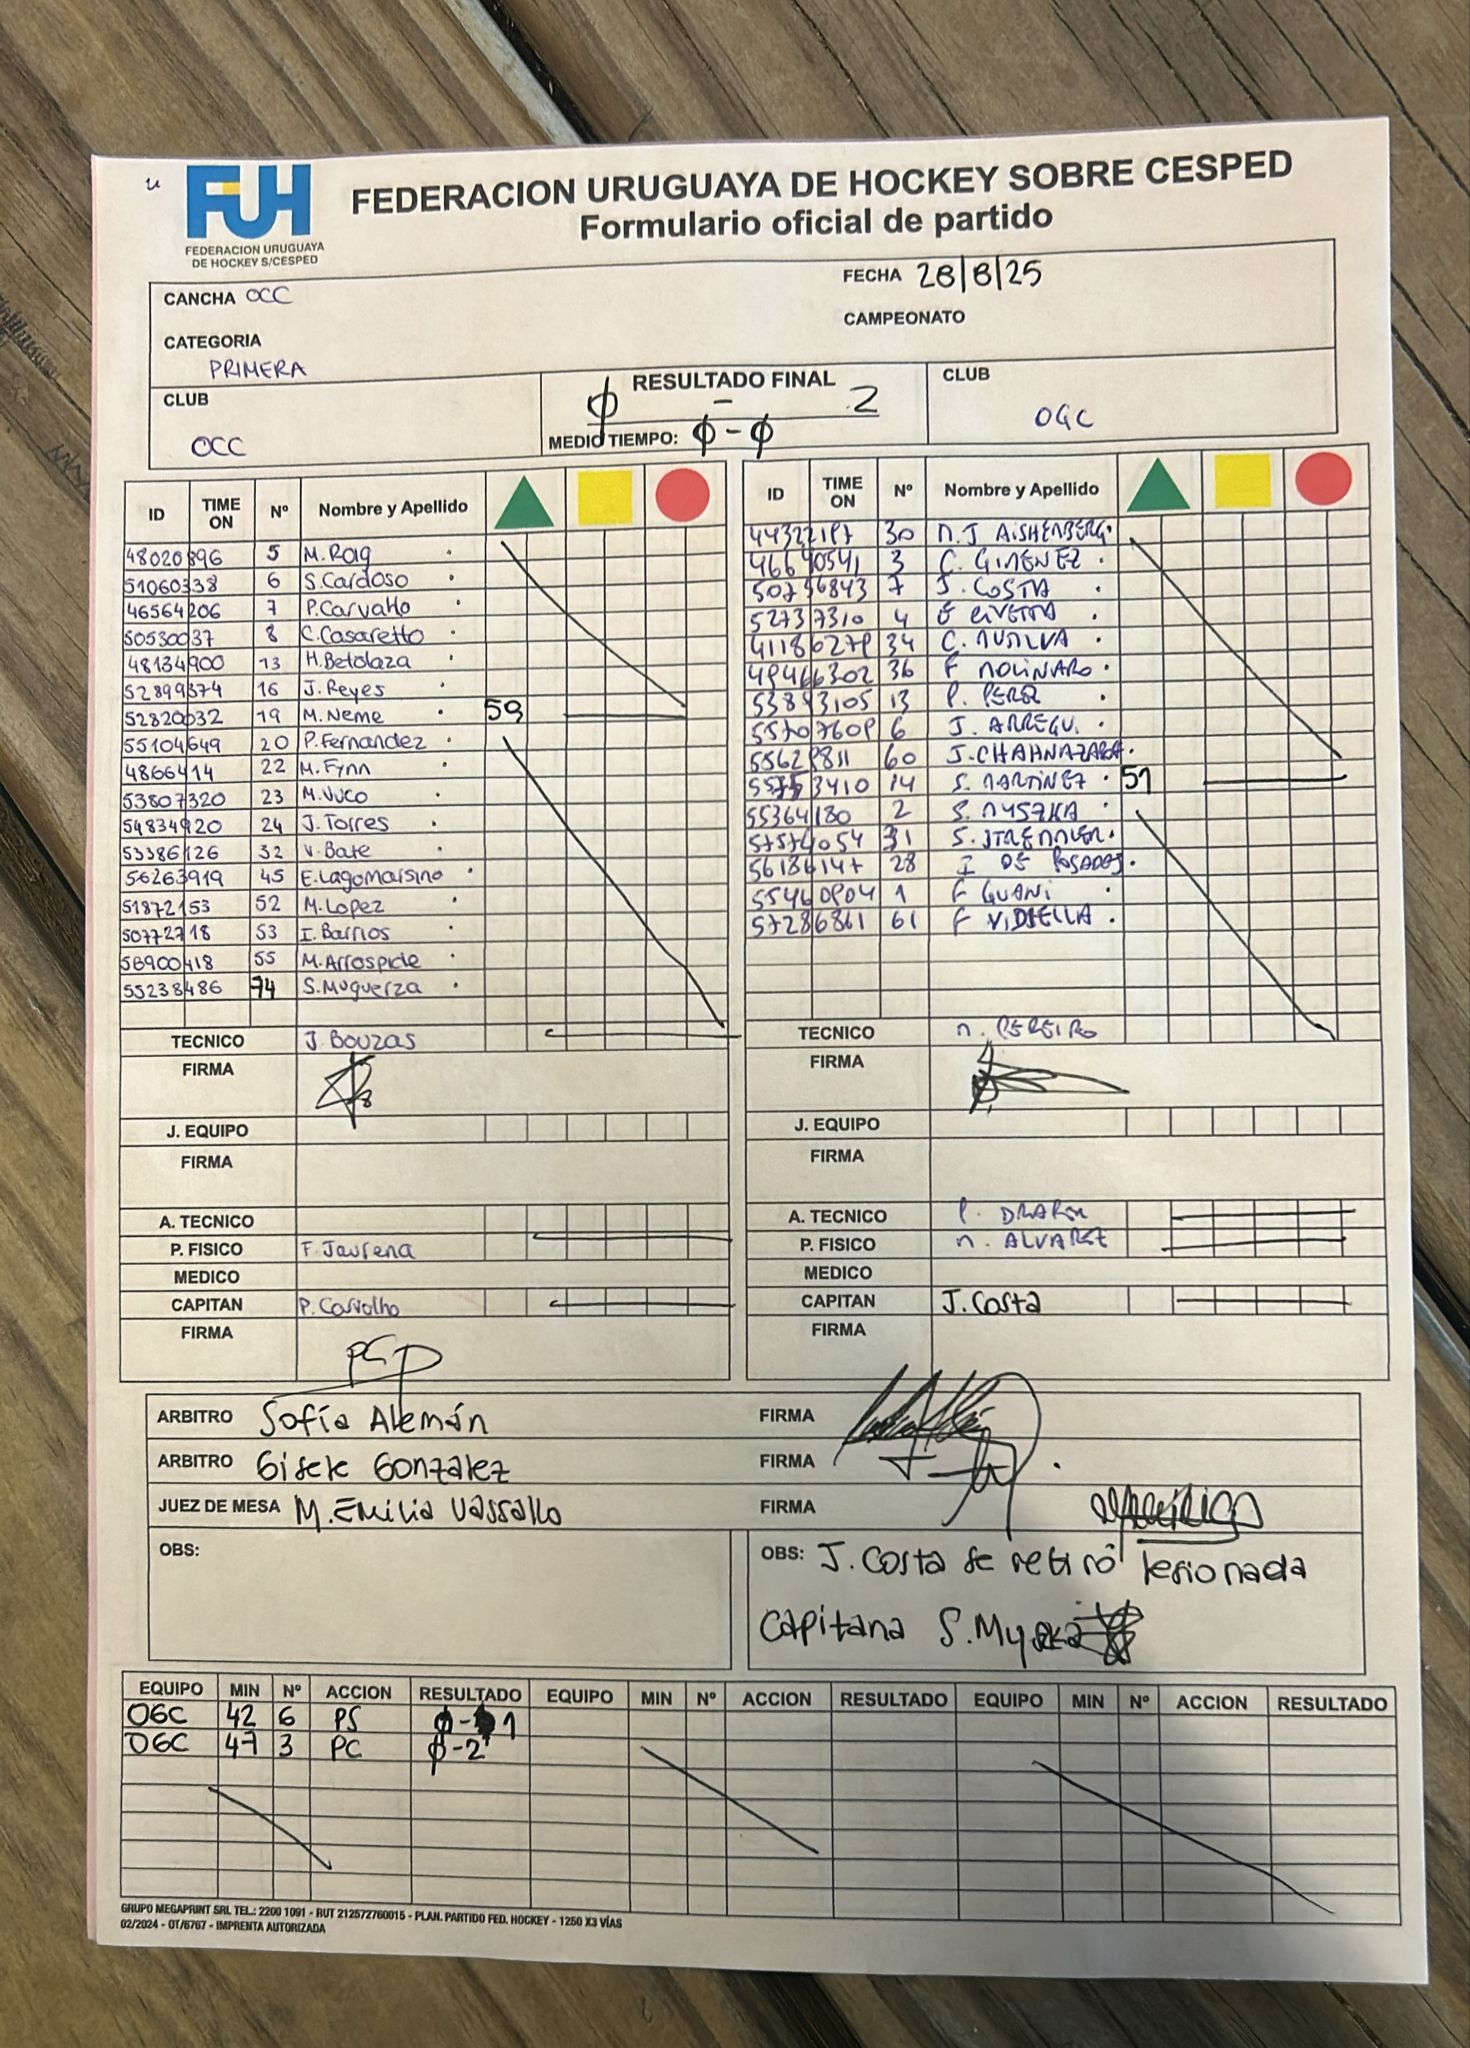 FUH
FEDERACION URUGUAYA
DE HOCKEY S/CESPED
FEDERACION URUGUAYA DE HOCKEY SOBRE CESPED
Formulario oficial de partido
CANCHA OCC
FECHA 28/8/25
CAMPEONATO
CATEGORIA
PRIMERA
CLUB
OCC
RESULTADO FINAL
Ø - 2
MEDIO TIEMPO: Ø - Ø
CLUB
OGC
ID TIME ON Nº Nombre y Apellido
48020896 5 M. Roig
51060338 6 S. Cardoso
46564206 7 P. Carvalho
50530037 8 C. Casaretto
48134900 13 H. Betolaza
52899374 16 J. Reyes
52820032 19 M. Neme 59
55104649 20 P. Fernandez
4866414 22 M. Fynn
53807320 23 M. Vuco
54834920 24 J. Torres
53386126 32 V. Bate
56263919 45 E. Lagomarsino
51872153 52 M. Lopez
50772718 53 I. Barrios
56900418 55 M. Arrospide
55238486 74 S. Muguerza
TECNICO J. Bouzas
FIRMA
J. EQUIPO
FIRMA
A. TECNICO
P. FISICO F. Jaurena
MEDICO
CAPITAN P. Carvalho
FIRMA
ID TIME ON Nº Nombre y Apellido
30 AISHENBERG
3 C. GIMENEZ
7 J. COSTA
52737310 4
34 C.
36 F MOLINARO
13 P. PEREZ
6 J. ARREGUI
60 J. CHAHNAZAR
14 S. MARTINEZ 51
55364180 2 S. MYSZKA
31 S.
28 I DE POSADAS
1 F GUANI
57286861 61 F VIDIELLA
TECNICO N. PEREIRO
FIRMA
J. EQUIPO
FIRMA
A. TECNICO
P. FISICO N. ALVAREZ
MEDICO
CAPITAN J. Costa
FIRMA
ARBITRO Sofía Alemán FIRMA
ARBITRO Gisele Gonzalez FIRMA
JUEZ DE MESA M. Emilia Vassallo FIRMA
OBS:
OBS: J. Costa se retiró lesionada
Capitana S. Myszka
EQUIPO MIN Nº ACCION RESULTADO EQUIPO MIN Nº ACCION RESULTADO EQUIPO MIN Nº ACCION RESULTADO
OGC 42 6 PS Ø-1
OGC 47 3 PC Ø-2
GRUPO MEGAPRINT SRL TEL.: 2200 1091 - RUT 212572760015 - PLAN. PARTIDO FED. HOCKEY - 1250 X3 VÍAS
02/2024 - OT/6767 - IMPRENTA AUTORIZADA